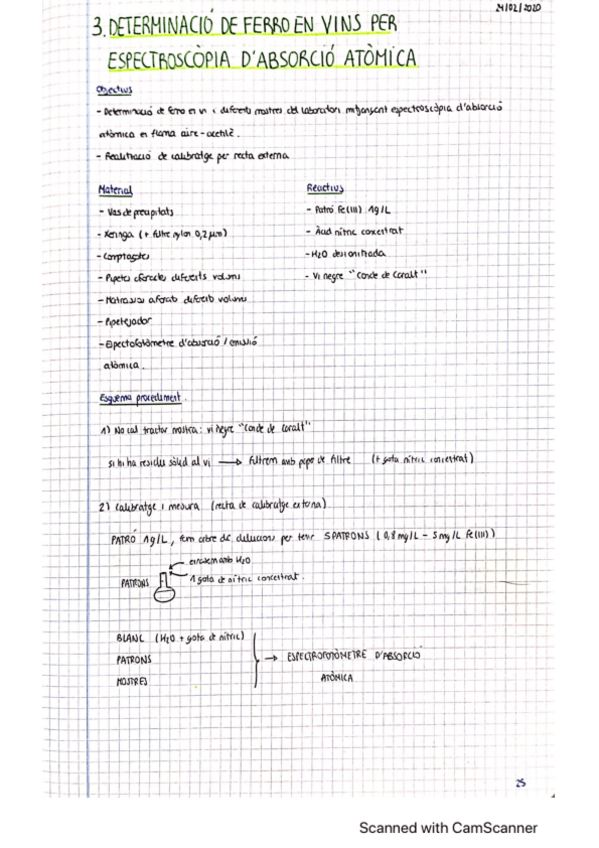 24/02/2020
3. DETERMINACIÓ DE FERRO EN VINS PER
ESPECTROSCÒPIA D'ABSORCIÓ ATÒMICA
Objectius
- Determinació de ferro en vi i diferents mostres del laboratori mitjançant espectroscòpia d'absorció
atòmica en flama aire-acetilè.
- Realització de calibratge per recta externa
Material
- Vas de precipitats
- Xeringa (+ filtre nylon 0,2 μm)
- Comptagotes
- Pipetes aforades diferents volums
- Matrassos aforats diferents volums
- Pipetejador
- Espectrofotòmetre d'absorció / emissió
atòmica.
Reactius
- Patró Fe(III) 1g/L
- Àcid nítric concentrat
- H2O desionitzada
- Vi negre "Conde de Coralt"
Esquema procediment.
1) No cal tractar mostra: vi negre "Conde de Coralt"
si hi ha residu sòlid al vi → Filtrem amb paper de filtre (+ gota nítric concentrat)
2) Calibratge i mesura (recta de calibratge externa)
PATRÓ 1g/L, fem sèrie de dilucions per tenir 5 PATRONS (0,8 mg/L - 5 mg/L Fe(III))
enrasem amb H2O
PATRONS
1 gota de nítric concentrat.
BLANC (H2O + gota de nítric)
PATRONS
MOSTRES
→ ESPECTROFOTÒMETRE D'ABSORCIÓ
ATÒMICA
25
Scanned with CamScanner